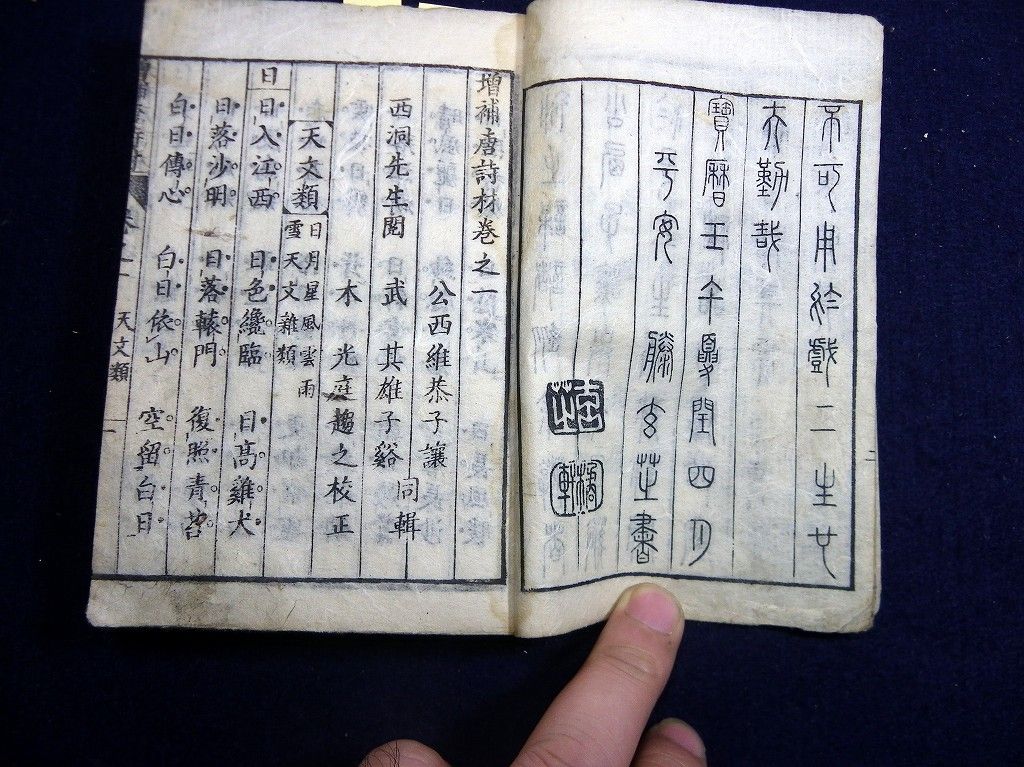 不可用於戲二生廿
夫勤哉
寶曆壬午夏閏四月
平安里滕玄芝書
增補唐詩材卷之一
公西維恭子讓
西洞先生閱 日武 其雄子谿 同輯
木光庭趨之校正
天文類 日月星風雲雨
雪天文雜類
日 日入江西 日色纔臨 日高雞犬
日落沙明 日落轅門 復照青苔
白日傳心 白日依山 空留白日
天文類 一